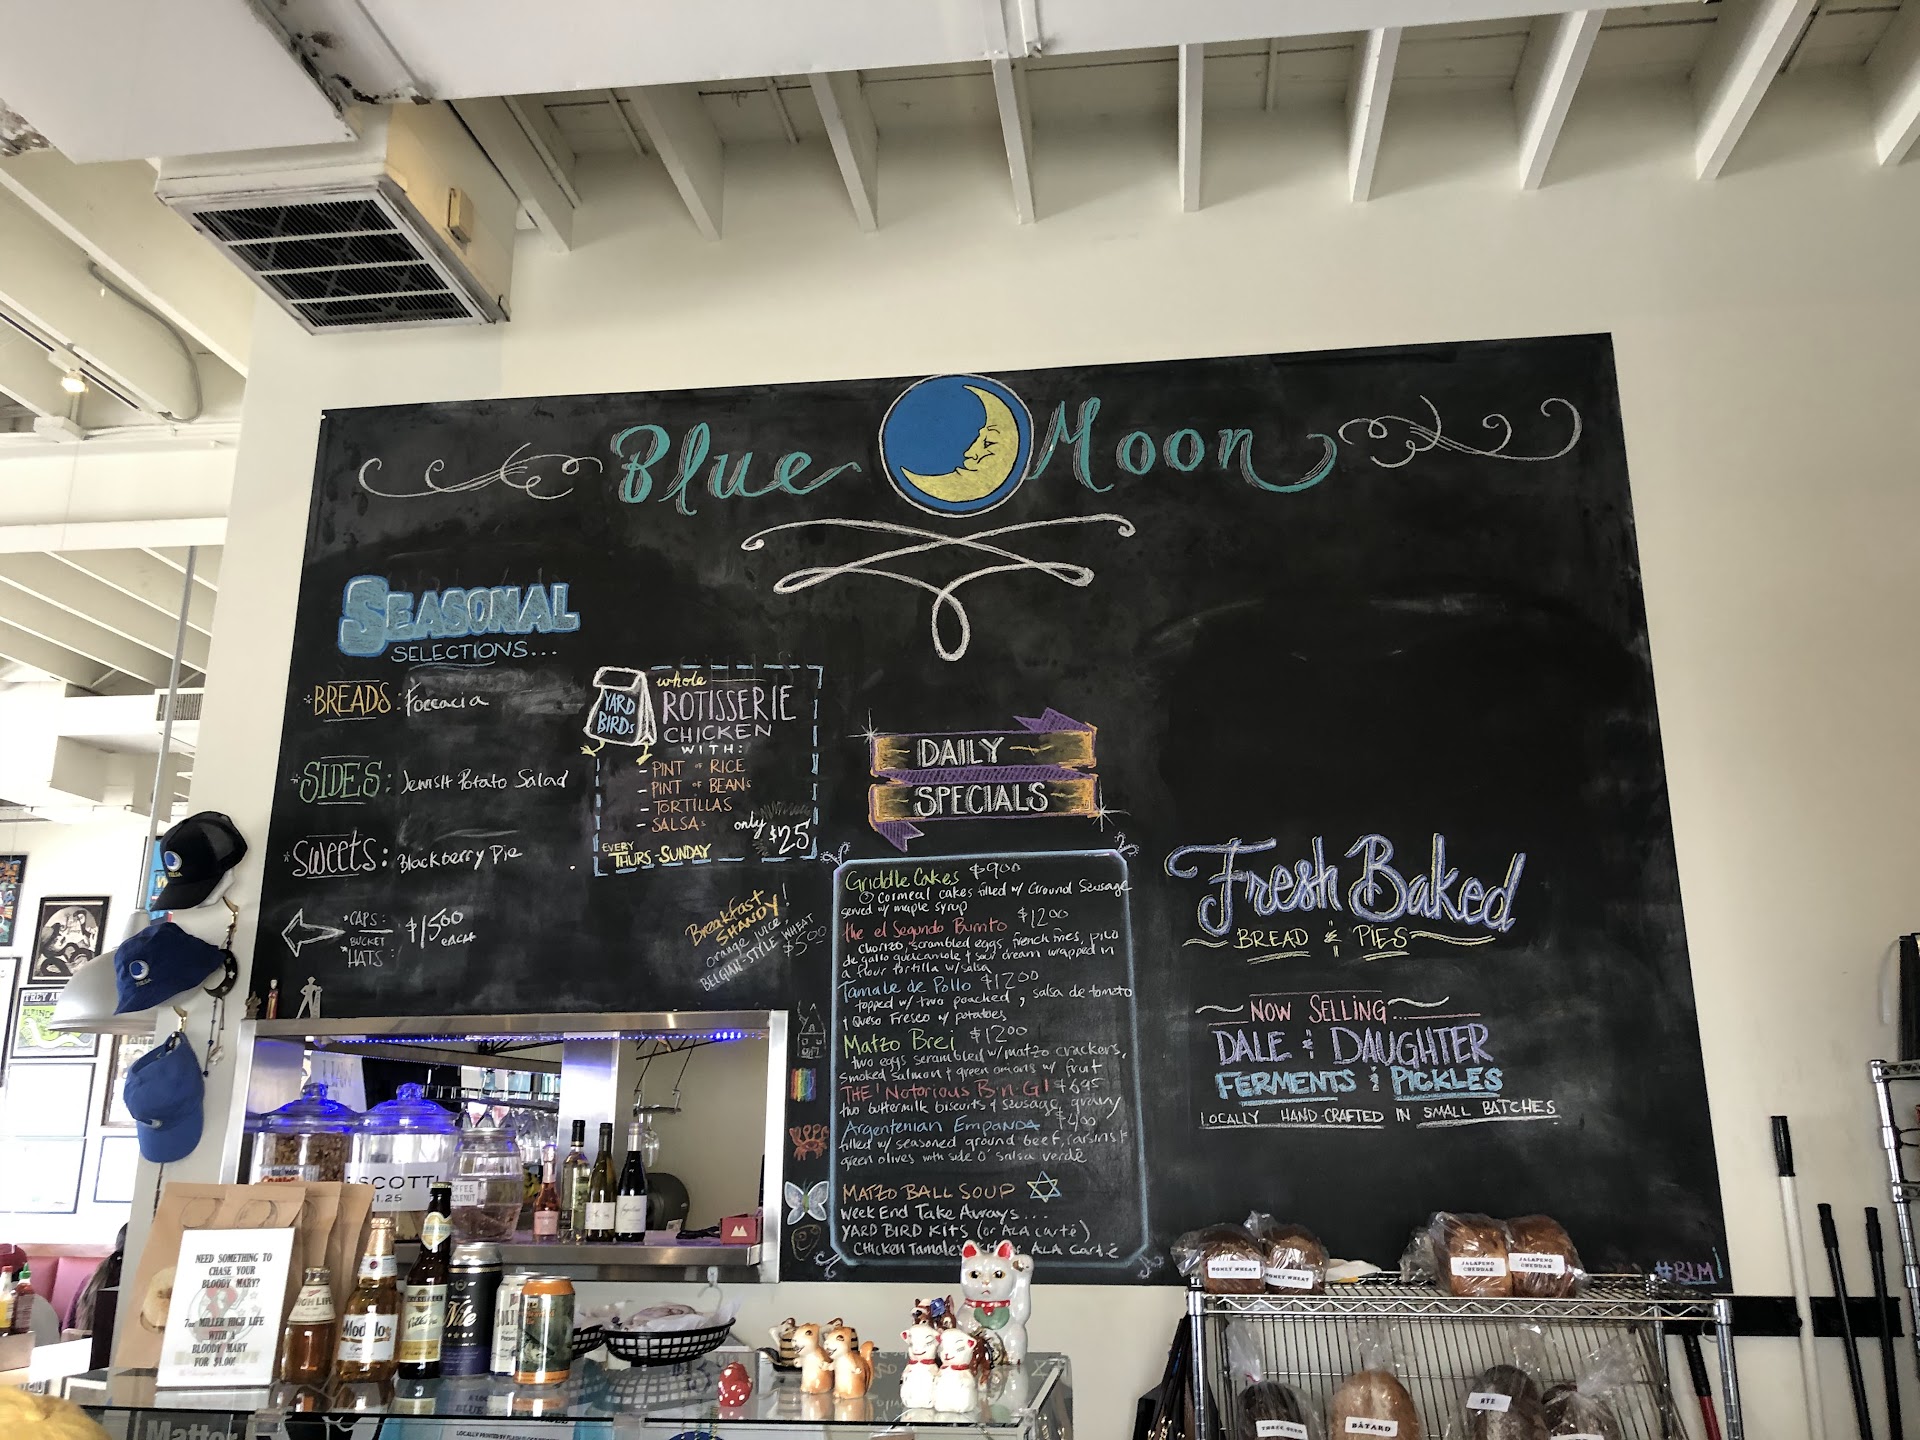 Blue Moon
SEASONAL
SELECTIONS...
*BREADS: Foccacia
*SIDES: Jewish Potato Salad
*Sweets: Blackberry Pie
*CAPS:
BUCKET
*HATS:
$15.00
each
YARD
BIRDs
whole
ROTISSERIE
CHICKEN
WITH:
- PINT OF RICE
- PINT OF BEANS
- TORTILLAS
- SALSA
only
$25
EVERY
THURS-SUNDAY
Breakfast
SHANDY!
orange juice,
BELGIAN-STYLE WHEAT
$5.00
DAILY
SPECIALS
Griddle Cakes $9.00
cornmeal cakes filled w/ Ground Sausage
served w/ maple syrup
the el Segundo Burrito $12.00
chorizo, scrambled eggs, french fries, pico
de gallo guacamole & sour cream wrapped in
a flour tortilla w/salsa
Tamale de Pollo $12.00
topped w/ two poached, salsa de tomato
& Queso Fresco w/ potatoes
Matzo Brei $12.00
two eggs scrambled w/matzo crackers,
smoked salmon & green onions w/ fruit
THE! Notorious B-n-G! $6.95
two buttermilk biscuits & sausage gravy
Argentenian EMPANDA $4.00
filled w/ seasoned ground beef, raisins &
green olives with side o' salsa verde
MATZO BALL SOUP
Week End Take Aways...
YARD BIRD KITS (or ALA Carté)
Chicken Tamale ALA Carté
Fresh Baked
BREAD & PIES
NOW SELLING...
DALE & DAUGHTER
FERMENTS & PICKLES
LOCALLY HAND-CRAFTED IN SMALL BATCHES
#BLM!
TULSA
TULSA
SCOTTI
1.25
NEED SOMETHING TO
CHASE YOUR
BLOODY MARY?
7oz MILLER HIGH LIFE
WITH A
BLOODY MARY
FOR $1.00!
HIGH LIFE
Modelo
Nite
HONEY WHEAT
HONEY WHEAT
JALAPENO
CHEDDAR
JALAPENO
CHEDDAR
BÂTARD
RYE
Matter